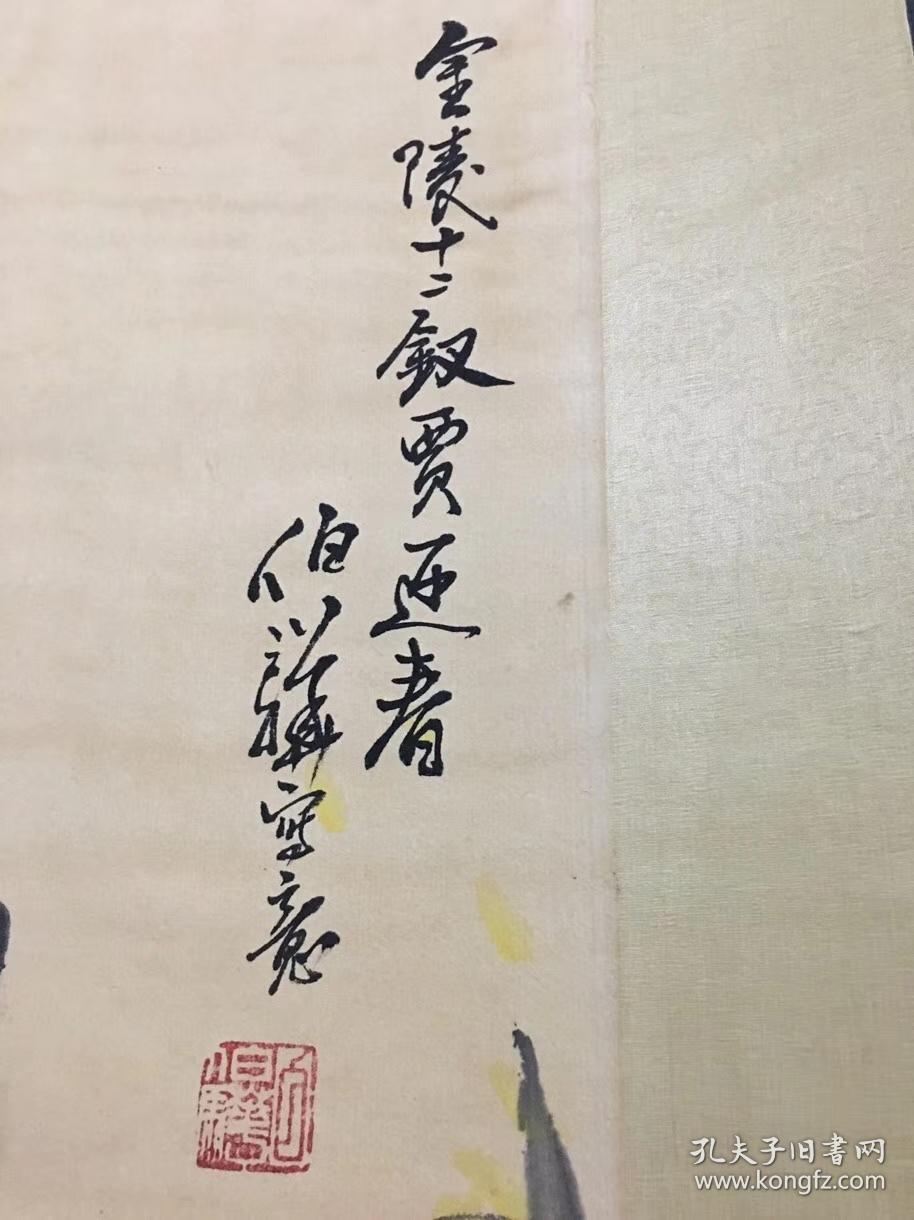 金陵十二釵賈迎春
伯驊寫意
孔夫子旧书网
www.kongfz.com